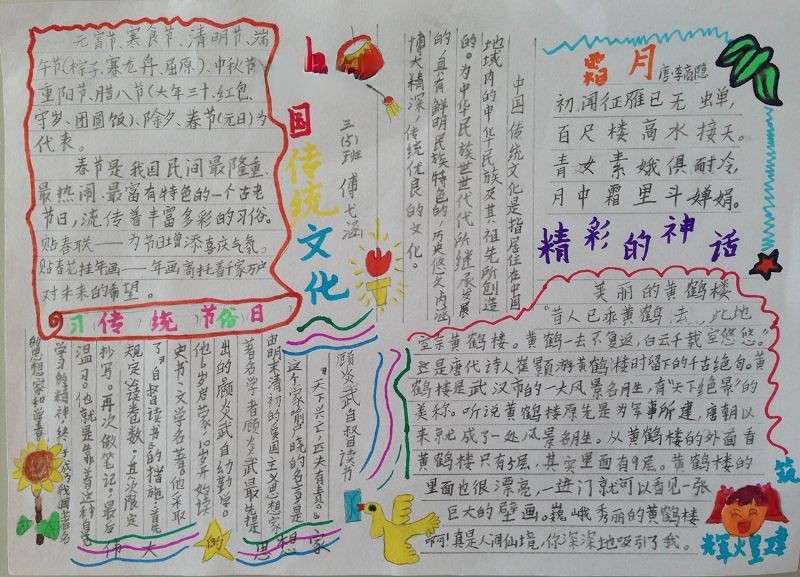 元宵节、寒食节、清明节、端
午节(粽子、赛龙舟、屈原)、中秋节
重阳节、腊八节(大年三十、红包、
守岁、团圆饭)、除夕、春节(元旦)为
代表。
春节是我国民间最隆重、
最热闹、最富有特色的一个古老
节日,流传着丰富多彩的习俗。
贴春联——为节日增添喜庆气氛。
挂年画——年画寄托着千家万户
对未来的希望。
习传统节俗日
中国传统文化
三(5)班
中国传统文化是指居住在中国
地域内的中华民族及其祖先所创造
的。为中华民族世世代代所继承发展
的,具有鲜明民族特色的,历史悠久,内涵
博大精深,传统优良的文化。
霜月
唐·李商隐
初闻征雁已无蝉,
百尺楼高水接天。
青女素娥俱耐冷,
月中霜里斗婵娟。
精彩的神话
美丽的黄鹤楼
“昔人已乘黄鹤去,此地
空余黄鹤楼。黄鹤一去不复返,白云千载空悠悠。”
这是唐代诗人崔颢游黄鹤楼时留下的千古绝句。黄
鹤楼是武汉市的一大风景名胜,有“天下绝景”的
美称。听说黄鹤楼原先是为军事所建,唐朝以
来就成了一处风景名胜。从黄鹤楼的外面看
黄鹤楼只有5层,其实里面有9层。黄鹤楼的
里面也很漂亮,一进门就可以看见一张
巨大的壁画。巍峨秀丽的黄鹤楼
啊!真是人间仙境,你深深地吸引了我。
筑
辉煌建
顾炎武自督读书
“天下兴亡,匹夫有责。”
这个家喻户晓的名言是
由明末清初的爱国主义思想家
著名学者顾炎武最先提
出的。顾炎武自幼勤学。
他6岁启蒙,10岁开始读
史书、文学名著。他采取
了“自督读书”的措施:首先
规定
读卷数;其次限定
抄写。再次做笔记;最后
温习。他就是靠着这种自觉
学习的精神,终于成为我国著名
的思想家和学者
伟大的思想家